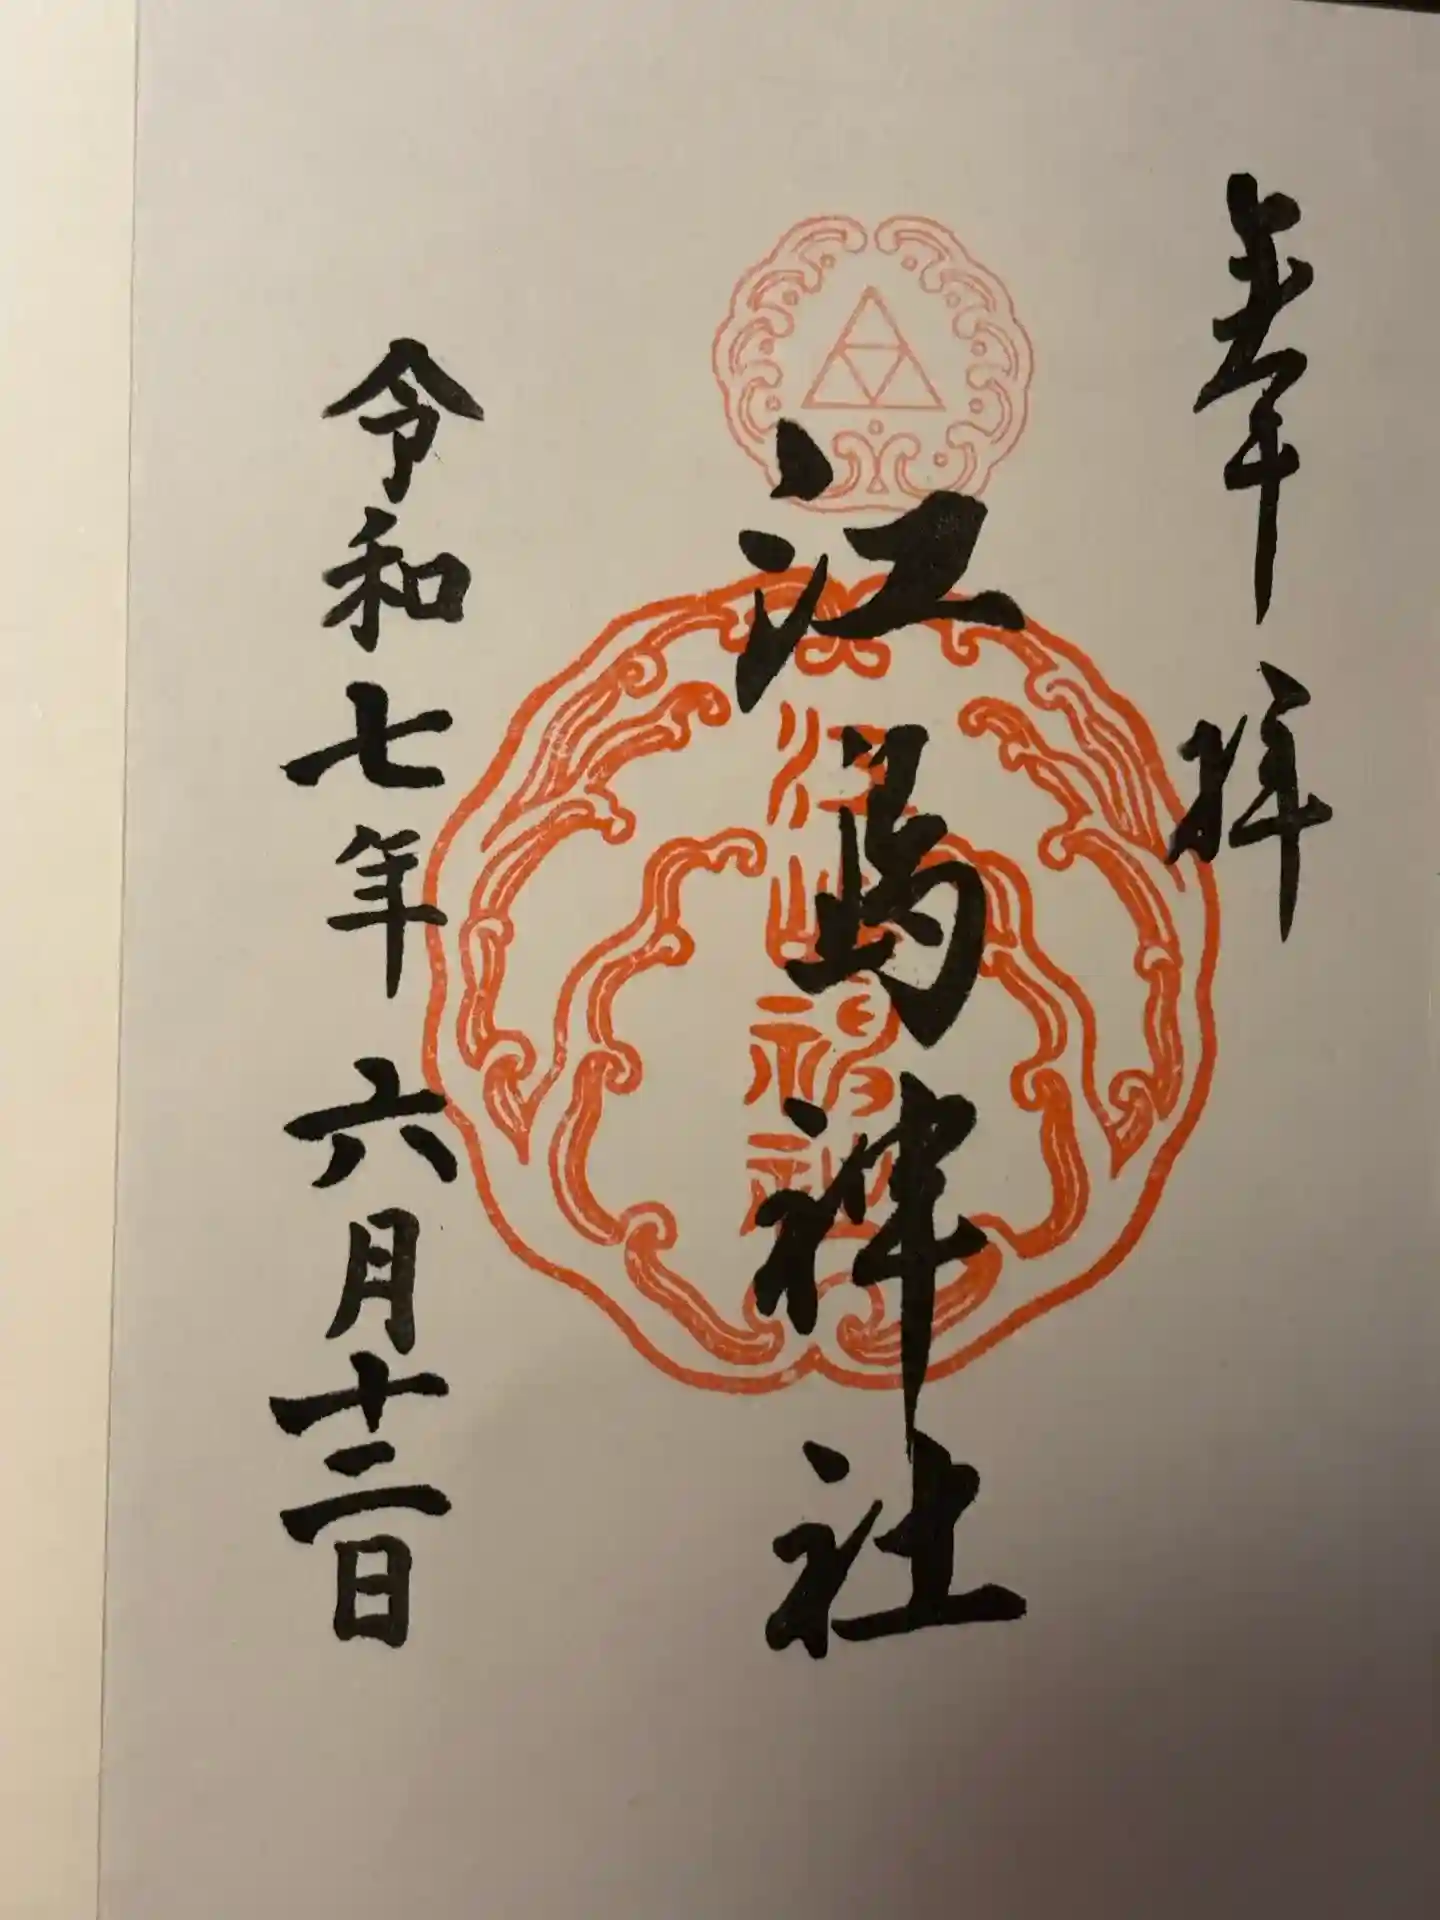 奉拝
江島神社
江島神社
令和七年六月十二日